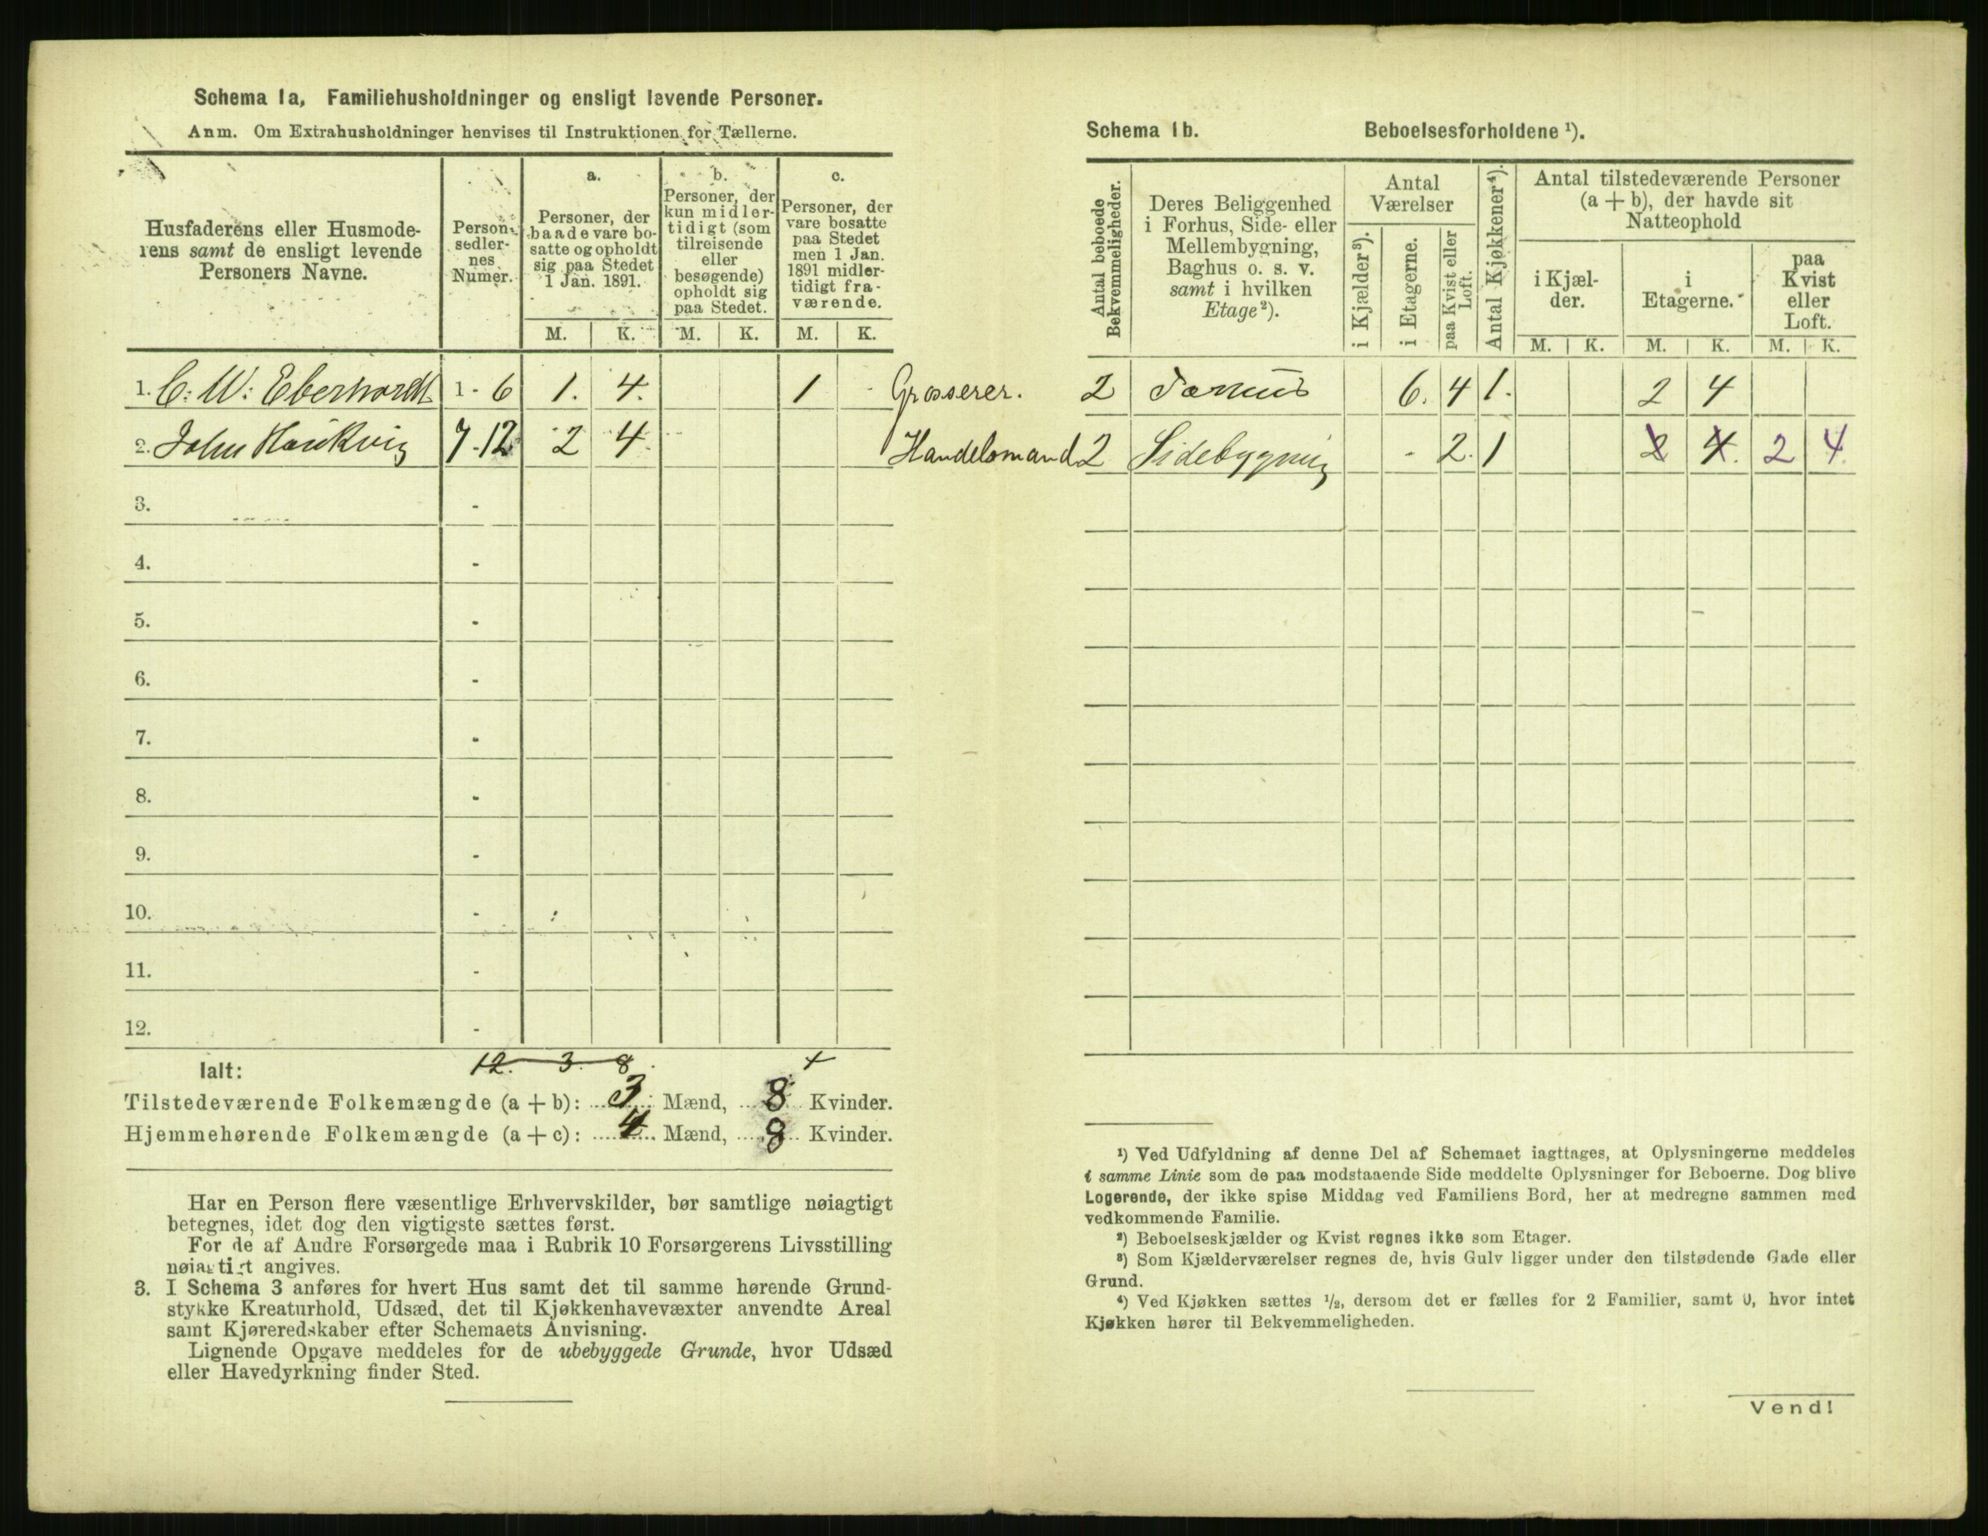 Schema 1a. Familiehusholdninger og ensligt levende Personer.
Anm. Om Extrahusholdninger henvises til Instruktionen for Tællerne.
Husfaderens eller Husmode-
rens samt de ensligt levende
Personers Navne.
Person-
sedler-
nes
Numer.
a.
Personer, der
baade vare bo-
satte og opholdt
sig paa Stedet
1 Jan. 1891.
b.
Personer, der
kun midler-
tidigt (som
tilreisende
eller
besøgende)
opholdt sig
paa Stedet.
c.
Personer, der
vare bosatte
paa Stedet
men 1 Jan.
1891 midler-
tidigt fra-
værende.
M. K. M. K. M. K.
1. C. W. Eberhardt 1 - 6 1. 4. 1 Grosserer.
2. John Haukvig 7 - 12 2 4 Handelsmand
3. -
4. -
5. -
6. -
7. -
8. -
9. -
10. -
11. -
12. -
Ialt: 12. 3. 8.
Tilstedeværende Folkemængde (a + b): 3 Mænd, 8 Kvinder.
Hjemmehørende Folkemængde (a + c): 4 Mænd, 8 Kvinder.
Har en Person flere væsentlige Erhvervskilder, bør samtlige nøiagtigt
betegnes, idet dog den vigtigste sættes først.
For de af Andre Forsørgede maa i Rubrik 10 Forsørgerens Livsstilling
nøiagtigt angives.
3. I Schema 3 anføres for hvert Hus samt det til samme hørende Grund-
stykke Kreaturhold, Udsæd, det til Kjøkkenhavevæxter anvendte Areal
samt Kjøreredskaber efter Schemaets Anvisning.
Lignende Opgave meddeles for de ubebyggede Grunde, hvor Udsæd
eller Havedyrkning finder Sted.
Schema 1b. Beboelsesforholdene ¹).
Antal beboede
Bekvemmeligheder.
Deres Beliggenhed
i Forhus, Side- eller
Mellembygning,
Baghus o. s. v.
samt i hvilken
Etage ²).
Antal
Værelser
i Kjælder ³).
i Etagerne.
paa Kvist eller
Loft.
Antal Kjøkkener ⁴).
Antal tilstedeværende Personer
(a + b), der havde sit
Natteophold
i Kjæl-
der.
i
Etagerne.
paa
Kvist
eller
Loft.
M. K. M. K. M. K.
2 Forhus 6. 4 1. 2 4
2 Sidebygning - 2. 1 2 4. 2 4.
¹) Ved Udfyldning af denne Del af Schemaet iagttages, at Oplysningerne meddeles
i samme Linie som de paa modstaaende Side meddelte Oplysninger for Beboerne. Dog blive
Logerende, der ikke spise Middag ved Familiens Bord, her at medregne sammen med
vedkommende Familie.
²) Beboelseskjælder og Kvist regnes ikke som Etager.
³) Som Kjælderværelser regnes de, hvis Gulv ligger under den tilstødende Gade eller
Grund.
⁴) Ved Kjøkken sættes ½, dersom det er fælles for 2 Familier, samt 0, hvor intet
Kjøkken hører til Bekvemmeligheden.
Vend!